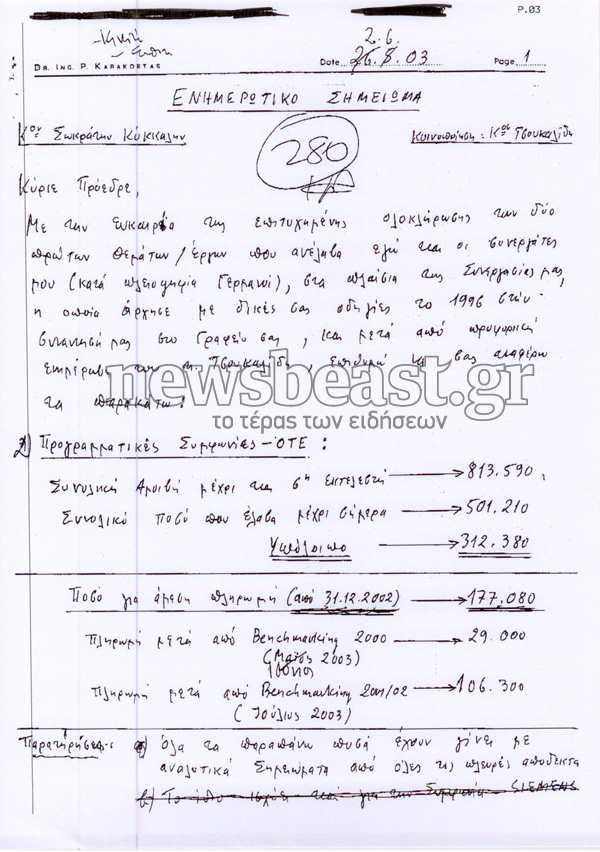 P.03
2.6.
DR. ING. P. KARAKOSTAS Date 26.8.03 Page 1
ΕΝΗΜΕΡΩΤΙΚΟ ΣΗΜΕΙΩΜΑ
Κον Σωκράτην Κόκκαλην Κοινοποίηση: Κος Τσουκαλίδη
280
Κύριε Πρόεδρε,
Με την ευκαιρία της επιτυχημένης ολοκλήρωσης των δύο
πρώτων θεμάτων/έργων που ανέλαβα εγώ και οι συνεργάτες
μου (κατά πλειοψηφία Γερμανοί), στα πλαίσια της Συνεργασίας μας,
η οποία άρχησε με δικές σας οδηγίες το 1996 στην
συνάντησή μας στο Γραφείο σας, και μετά από προφορική
ενημέρωση του κ. Τσουκαλίδη, επιθυμώ να σας αναφέρω
τα παρακάτω:
newsbeast.gr
το τέρας των ειδήσεων
1) Προγραμματικές Συμφωνίες - ΟΤΕ :
Συνολική Αμοιβή μέχρι και 5η εκτελεστή 813.590
Συνολικό ποσό που έλαβα μέχρι σήμερα 501.210
Υπόλοιπο 312.380
Ποσό για άμεση πληρωμή (από 31.12.2002) 177.080
Πληρωμή μετά από Benchmarking 2000 29.000
(Μαϊος 2003)
Ιούνιος
Πληρωμή μετά από Benchmarking 2001/02 106.300
(Ιούλιος 2003)
Παρατηρήσεις: α) όλα τα παραπάνω ποσά έχουν γίνει με
αναλυτικά Σημειώματα από όλες τις πλευρές αποδεκτα
β) Το ίδιο ισχύει και για την Συμφωνία SIEMENS